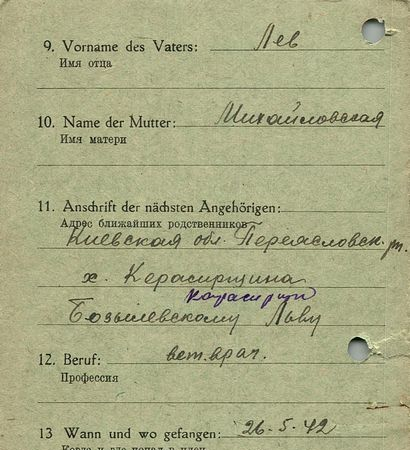 9. Vorname des Vaters: Лев
Имя отца
10. Name der Mutter: Михайловская
Имя матери
11. Anschrift der nächsten Angehörigen:
Адрес ближайших родственников
Киевская обл. Переясловск. р.
х. Керасирщина
Льву
12. Beruf: вет. врач.
Профессия
13 Wann und wo gefangen: 26-5-42